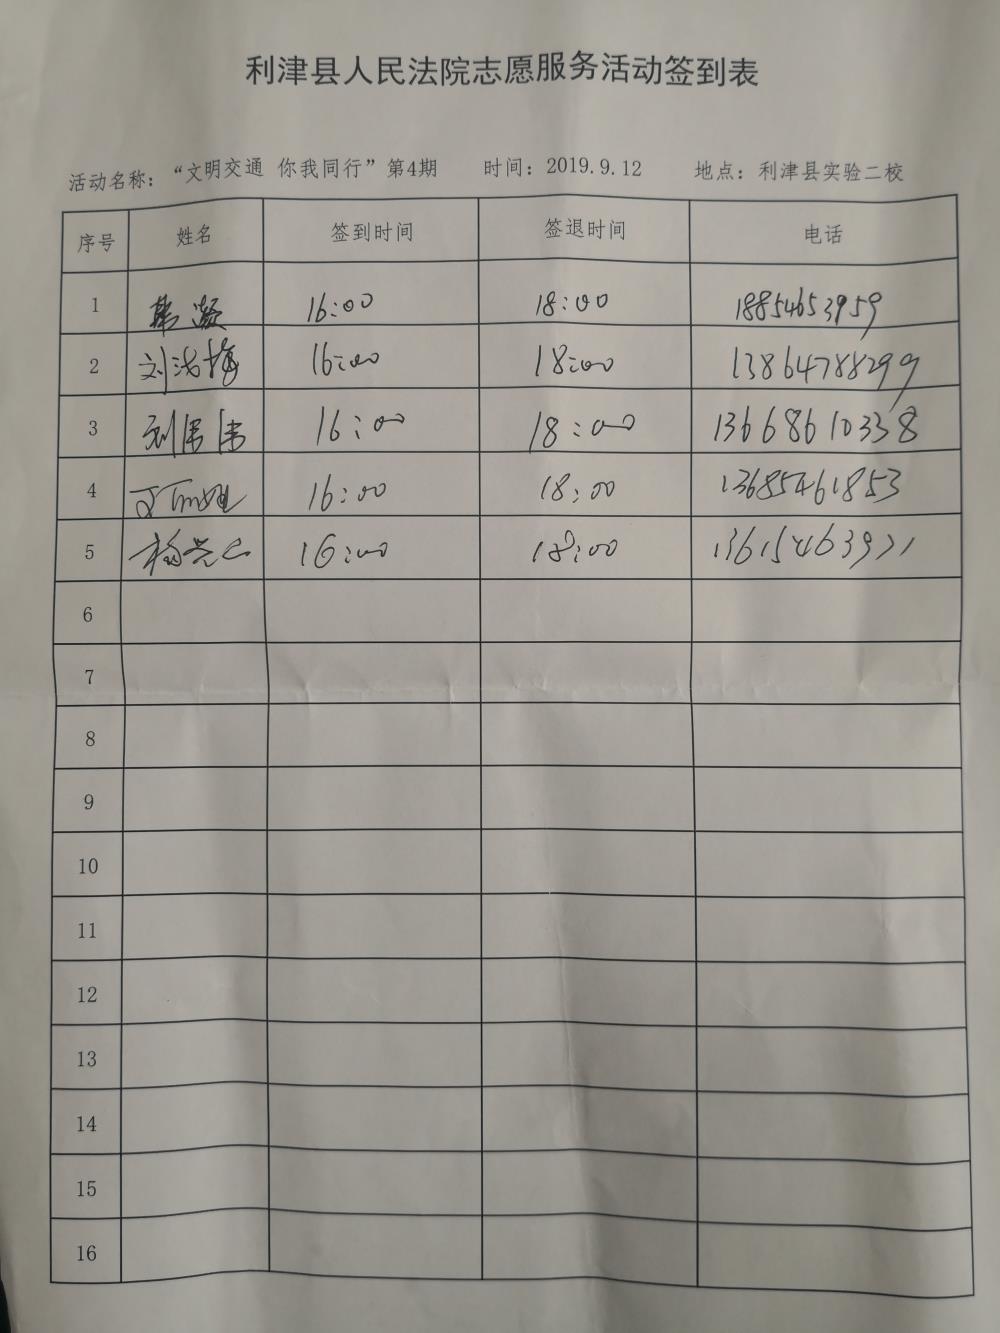 利津县人民法院志愿服务活动签到表
活动名称：“文明交通 你我同行”第4期 时间：2019.9.12 地点：利津县实验二校
序号 姓名 签到时间 签退时间 电话
1 16:00 18:00 18854653959
2 刘洪梅 16:00 18:00 13864788299
3 刘伟伟 16:00 18:00 13668610338
4 16:00 18:00 13685461853
5 16:00 18:00 13615463921
6
7
8
9
10
11
12
13
14
15
16